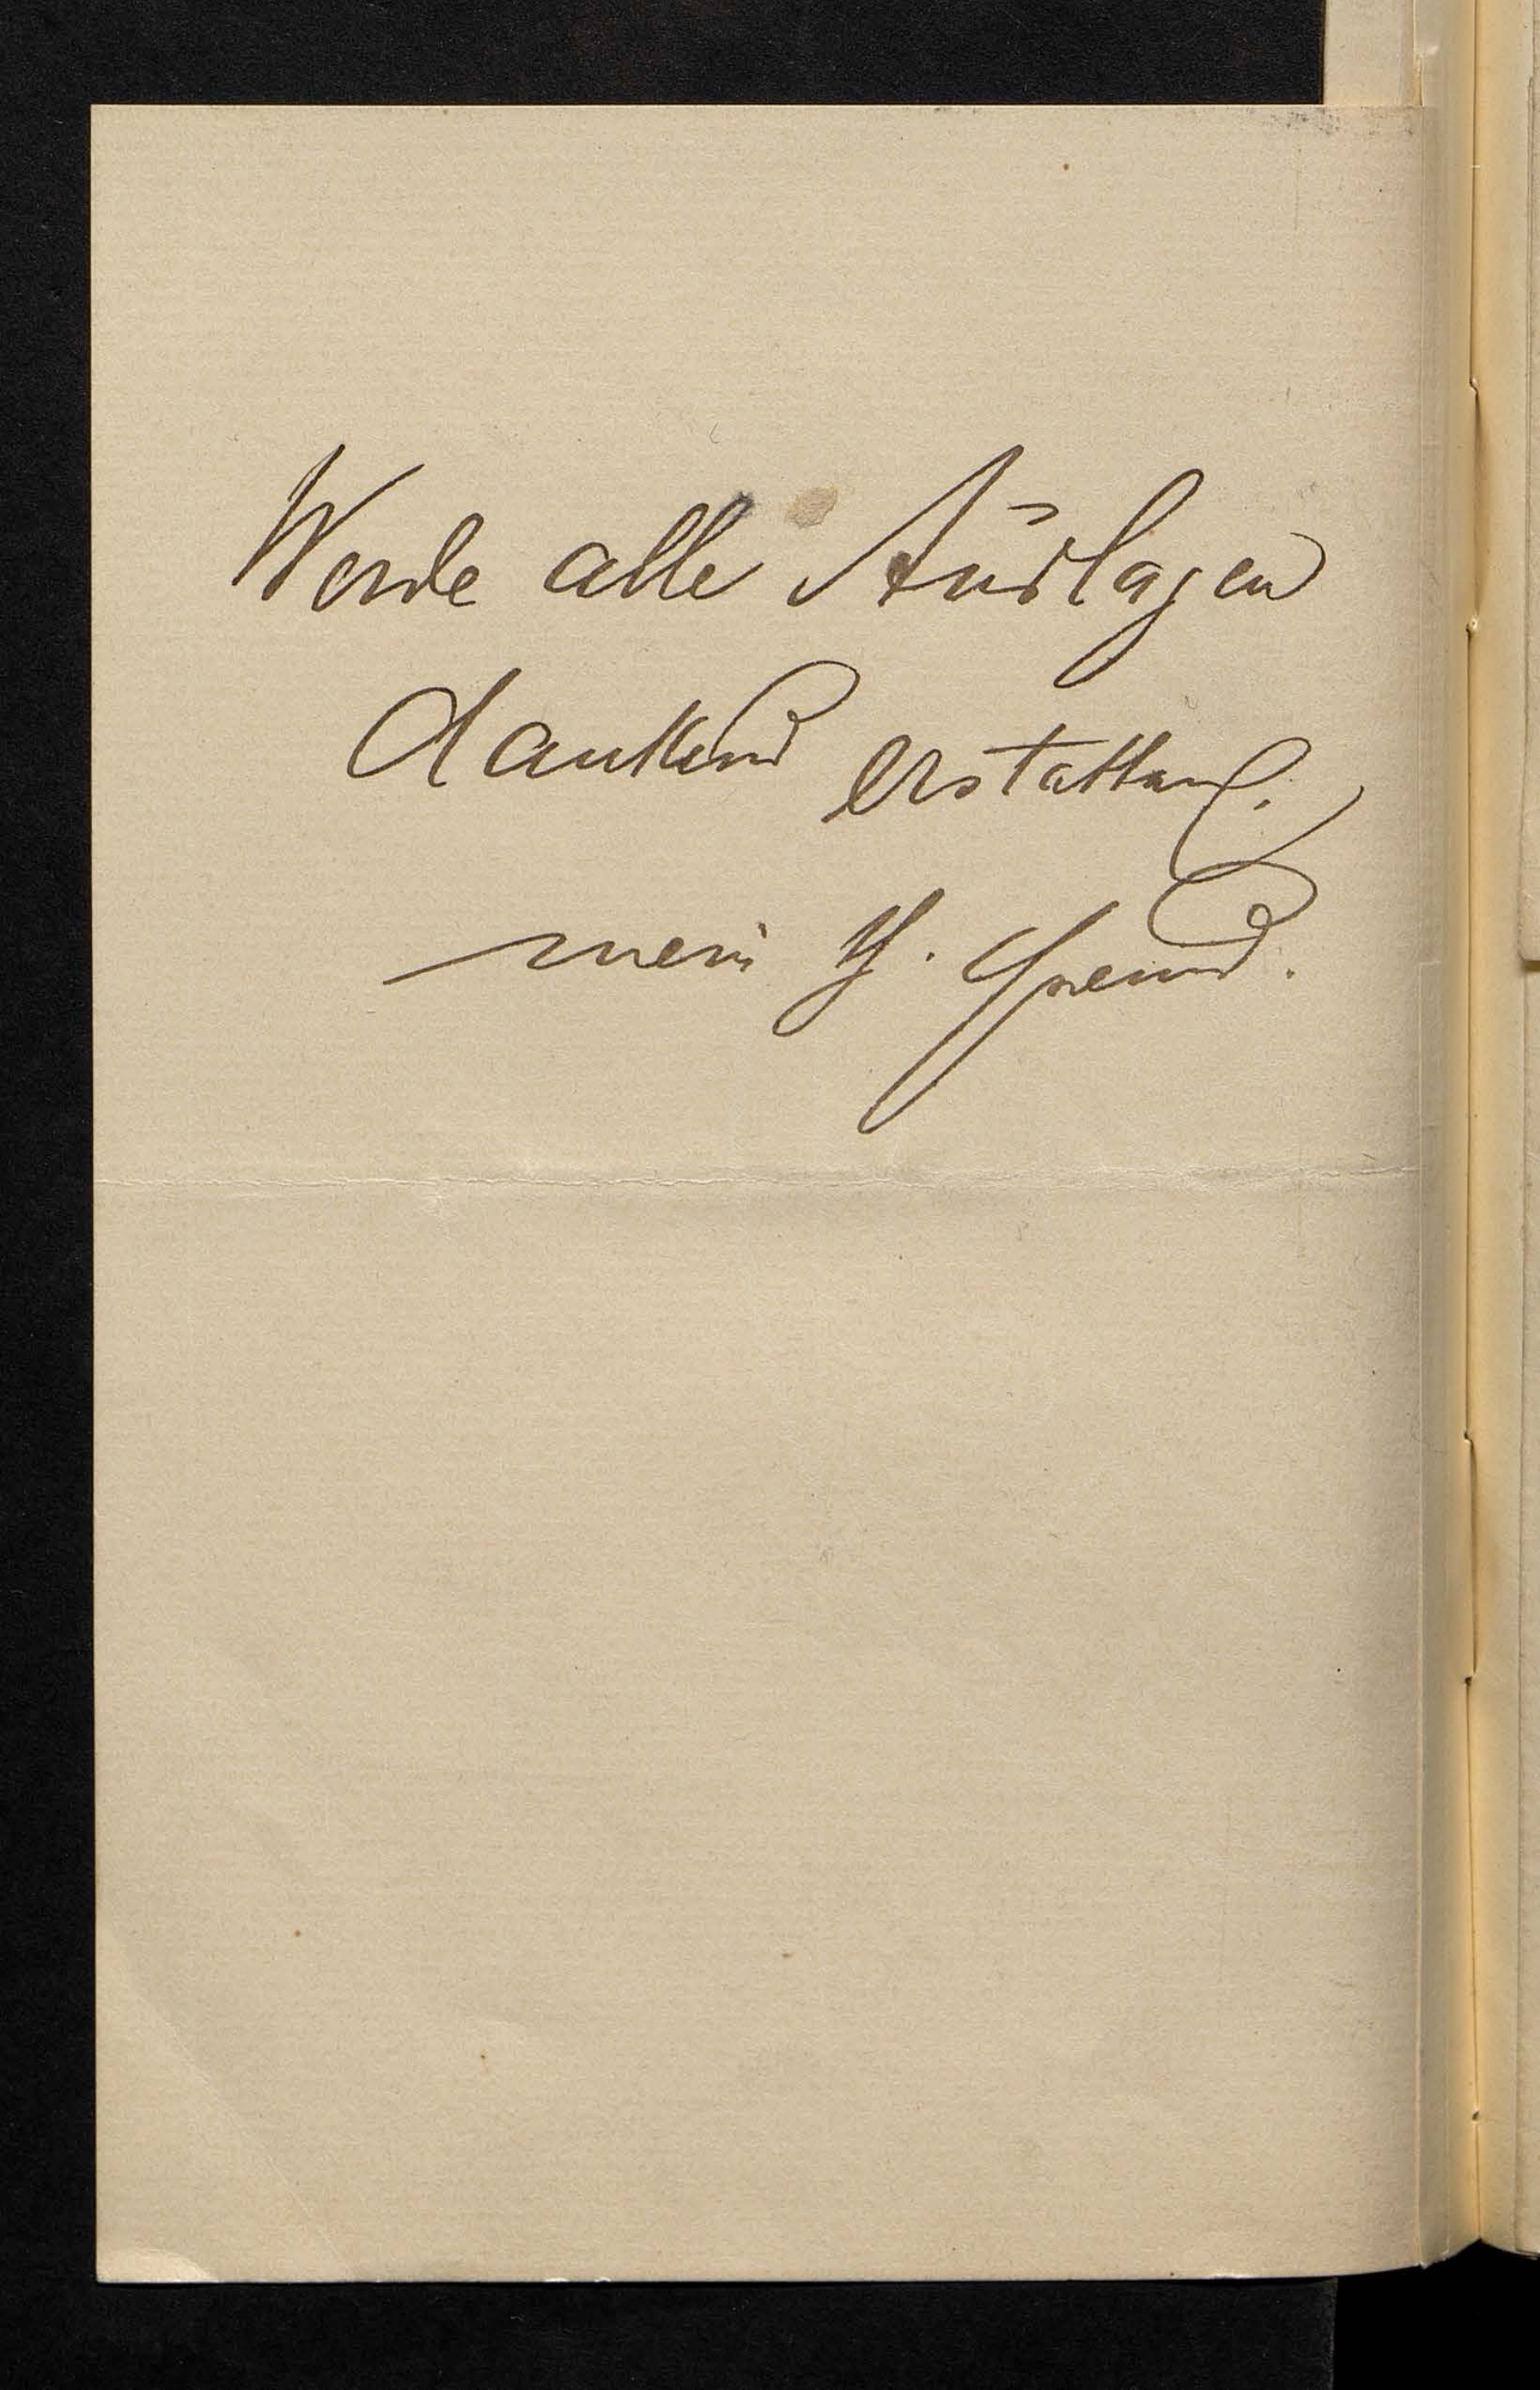 Werde alle Auslagen
dankend erstatten.
mein H. Freund.